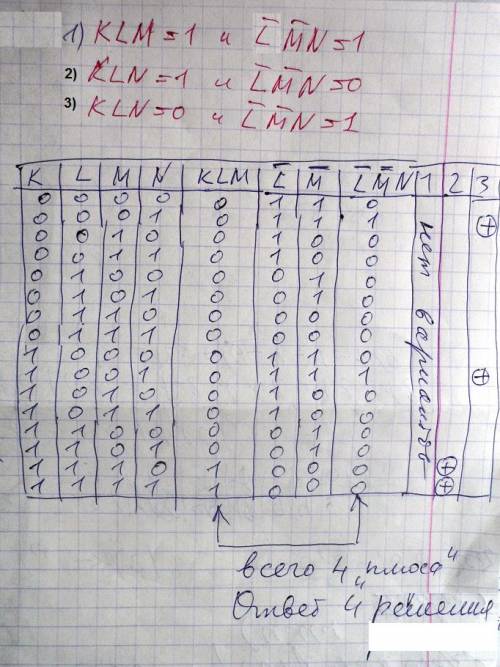 1) KLM=1 и L̅ M̅ N=1
2) KLN=1 и L̅ M̅ N=0
3) KLN=0 и L̅ M̅ N=1
K L M N KLM L̅ M̅ L̅ M̅ N 1 2 3
0 0 0 0 0 1 1 0
0 0 0 1 0 1 1 1 ⊕
0 0 1 0 0 1 0 0
0 0 1 1 0 1 0 0
0 1 0 0 0 0 1 0
0 1 0 1 0 0 1 0
0 1 1 0 0 0 0 0
0 1 1 1 0 0 0 0
1 0 0 0 0 1 1 0
1 0 0 1 0 1 1 1 ⊕
1 0 1 0 0 1 0 0
1 0 1 1 0 1 0 0
1 1 0 0 0 0 1 0
1 1 0 1 0 0 1 0
1 1 1 0 1 0 0 0 ⊕
1 1 1 1 1 0 0 0 ⊕
нет вариантов
всего 4 „плюса"
Ответ 4 решения